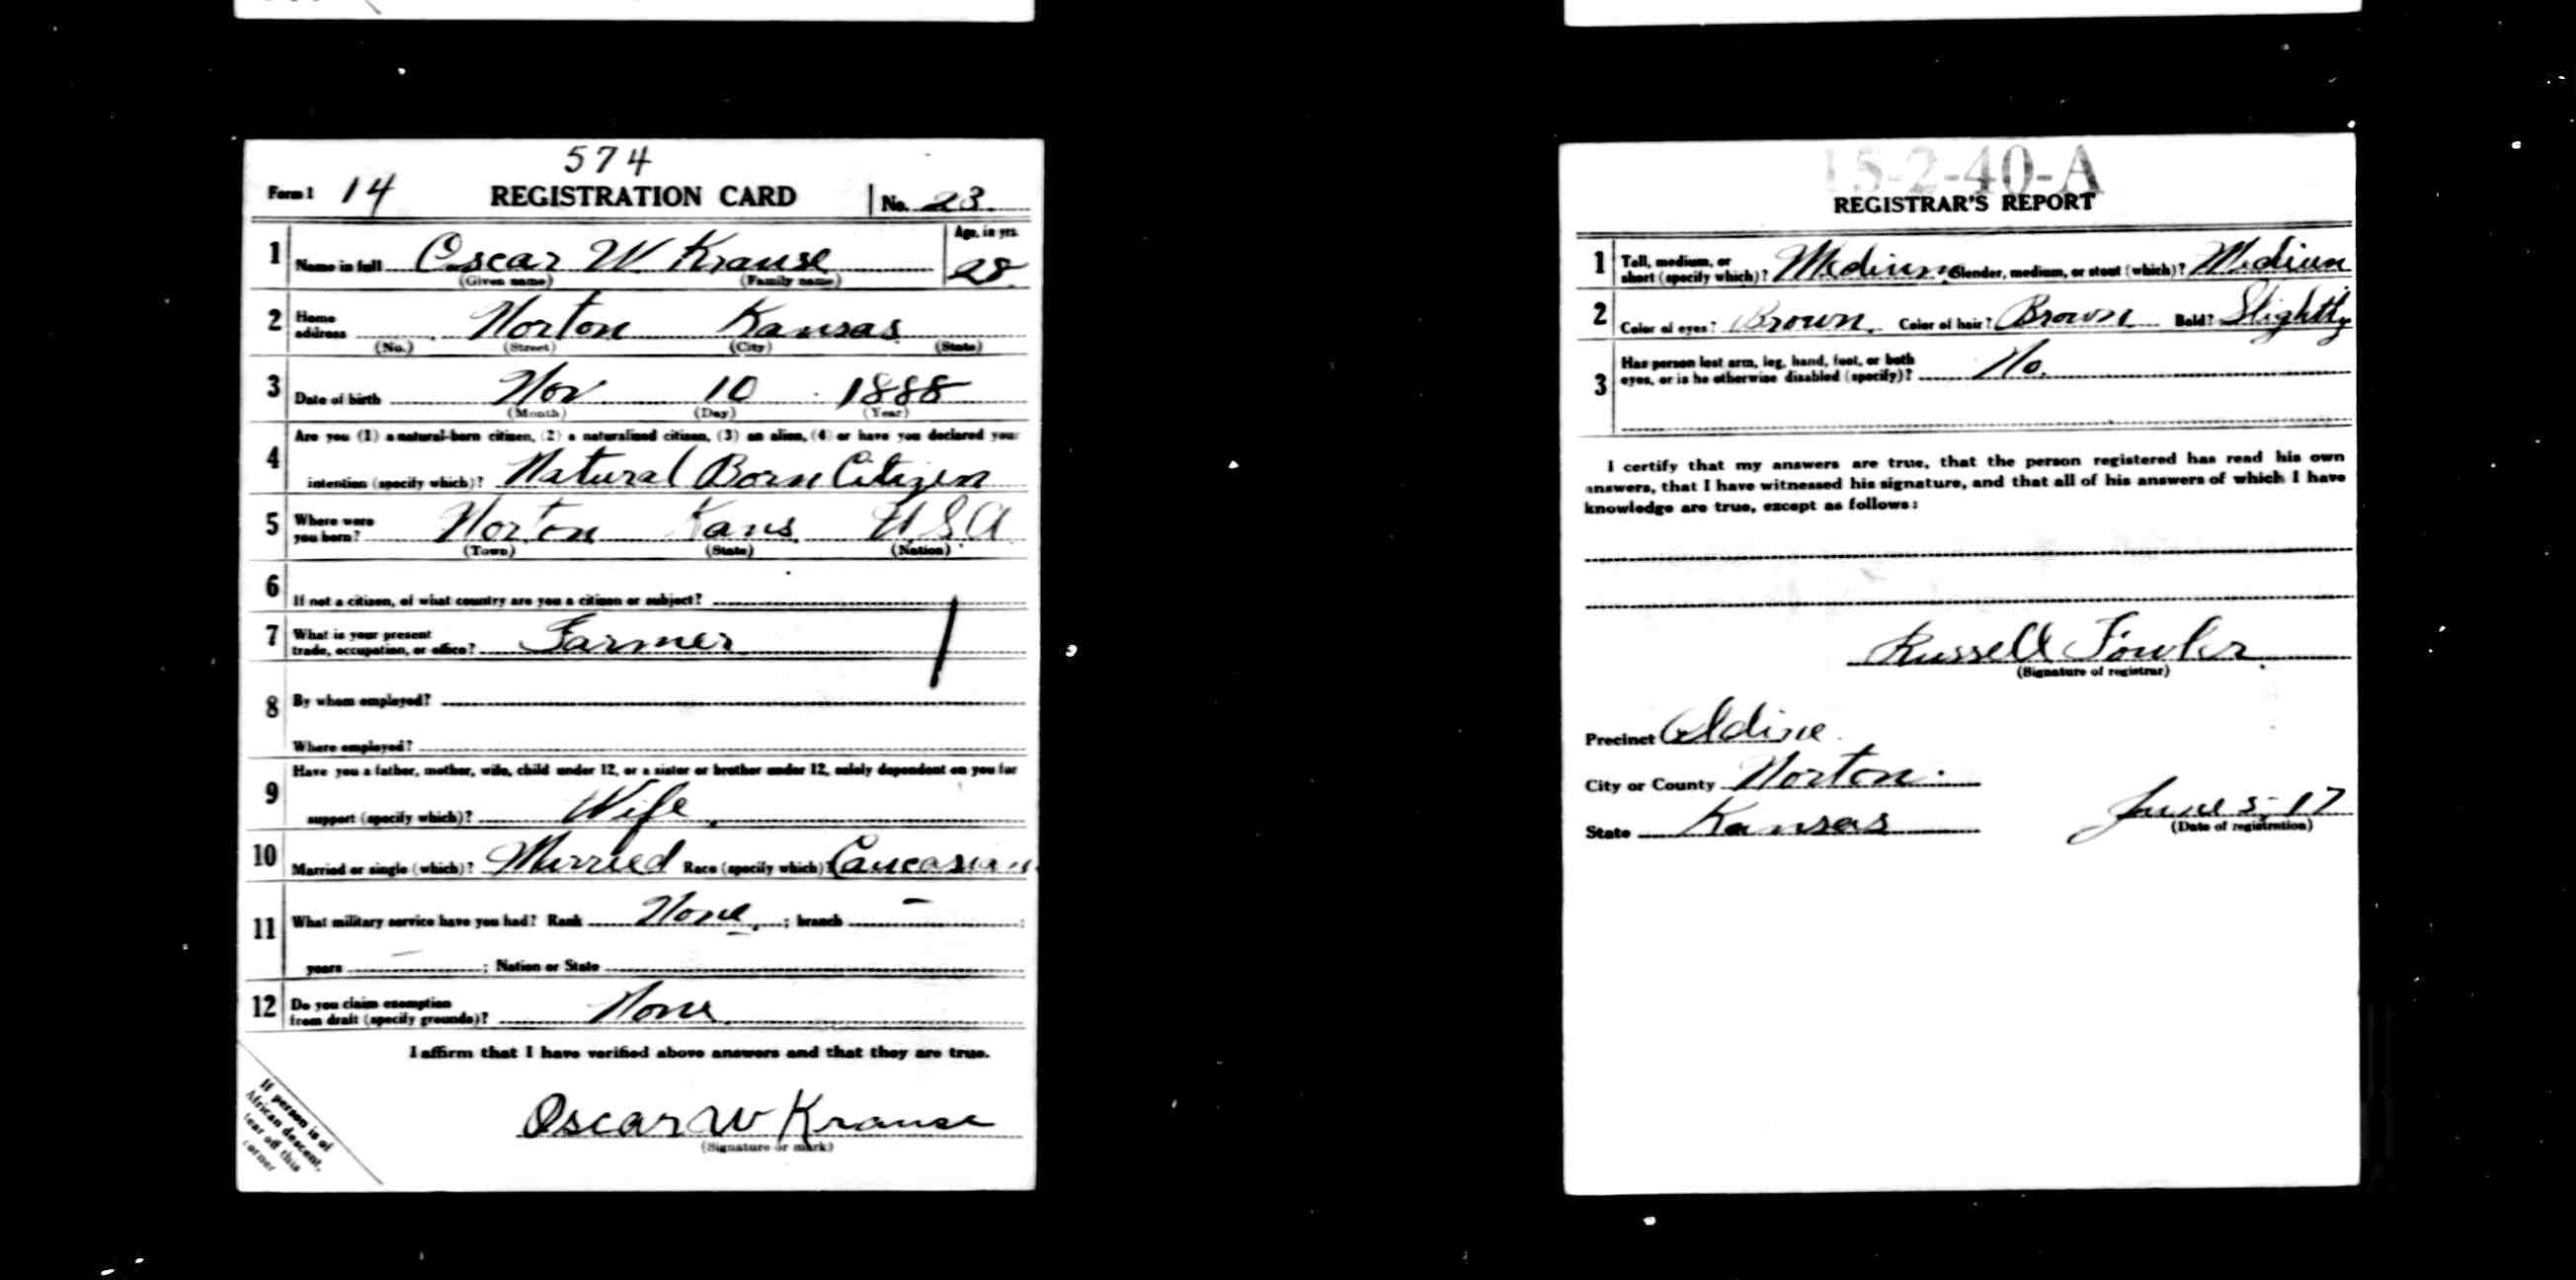 574
Form 1 14 REGISTRATION CARD No. 23.
1 Name in full Oscar W Krause Age, in yrs. 28
(Given name) (Family name)
2 Home address Norton Kansas
(No.) (Street) (City) (State)
3 Date of birth Nov 10 1888
(Month) (Day) (Year)
4 Are you (1) a natural-born citizen, (2) a naturalized citizen, (3) an alien, (4) or have you declared your
intention (specify which)? Natural Born Citizen
5 Where were you born? Norton Kans. U.S.A.
(Town) (State) (Nation)
6 If not a citizen, of what country are you a citizen or subject?
7 What is your present trade, occupation, or office? Farmer
8 By whom employed?
Where employed?
9 Have you a father, mother, wife, child under 12, or a sister or brother under 12, solely dependent on you for
support (specify which)? Wife.
10 Married or single (which)? Married Race (specify which)? Caucasian
11 What military service have you had? Rank None ; branch - ;
years - ; Nation or State
12 Do you claim exemption from draft (specify grounds)? None
I affirm that I have verified above answers and that they are true.
Oscar W Krause
(Signature or mark)
If person is of
African descent,
tear off this
corner
15-2-40-A
REGISTRAR'S REPORT
1 Tall, medium, or short (specify which)? Medium Slender, medium, or stout (which)? Medium
2 Color of eyes? Brown. Color of hair? Brown Bald? Slightly
3 Has person lost arm, leg, hand, foot, or both
eyes, or is he otherwise disabled (specify)? No.
I certify that my answers are true, that the person registered has read his own
answers, that I have witnessed his signature, and that all of his answers of which I have
knowledge are true, except as follows:
Russell Fowler
(Signature of registrar)
Precinct Aldine
City or County Norton.
State Kansas June 5-17
(Date of registration)